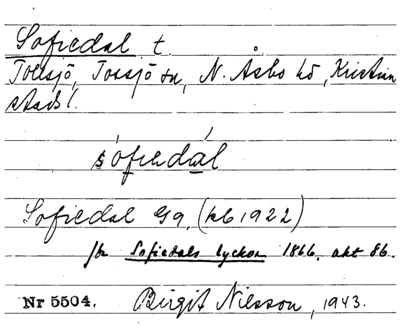 Sofiedal t.
Tossjö, Tossjö sn, N. Åsbo hd, Kristian
stads l.
sófiedál
Sofiedal Gg. (kb 1922)
fr Sofiedals lyckor 1866. akt 86.
Nr 5504. Birgit Nilsson, 1943.